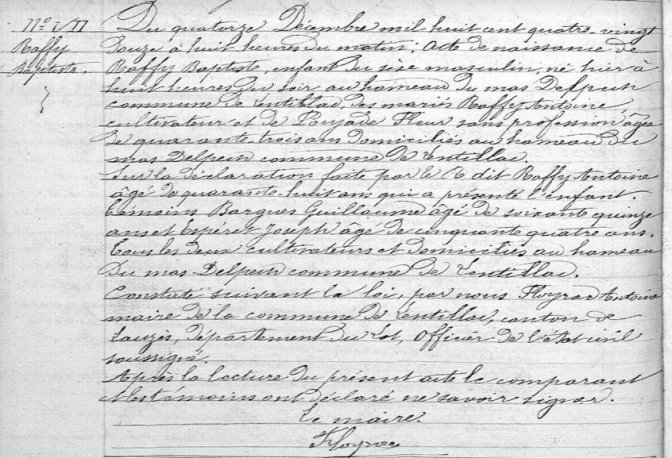 Raffy
Baptiste.
Du quatorze Décembre mil huit cent quatre-vingt
douze à huit heures du matin; Acte de naissance de
Raffy Baptiste, enfant du sexe masculin, né hier à
huit heures du soir au hameau du mas Delpech
commune de Lentillac, des mariés Raffy Antoine
cultivateur et de Pouzade Fleur sans profession âgée
de quarante trois ans domiciliés au hameau du
mas Delpech commune de Lentillac.
Sur la déclaration faite par le dit Raffy Antoine
âgé de quarante-huit ans qui a présenté l'enfant.
témoins Bargues Guillaume âgé de soixante quinze
ans et Joseph âgé de cinquante quatre ans.
tous les deux cultivateurs et domiciliés au hameau
du mas Delpech commune de Lentillac.
Constaté suivant la loi, par nous Floyrac Antoine
maire de la commune de Lentillac, canton de
Lauzès, département du Lot, Officier de l'état civil
soussigné.
Après la lecture du présent acte le comparant
et les témoins ont déclaré ne savoir signer.
Le maire.
Floyrac